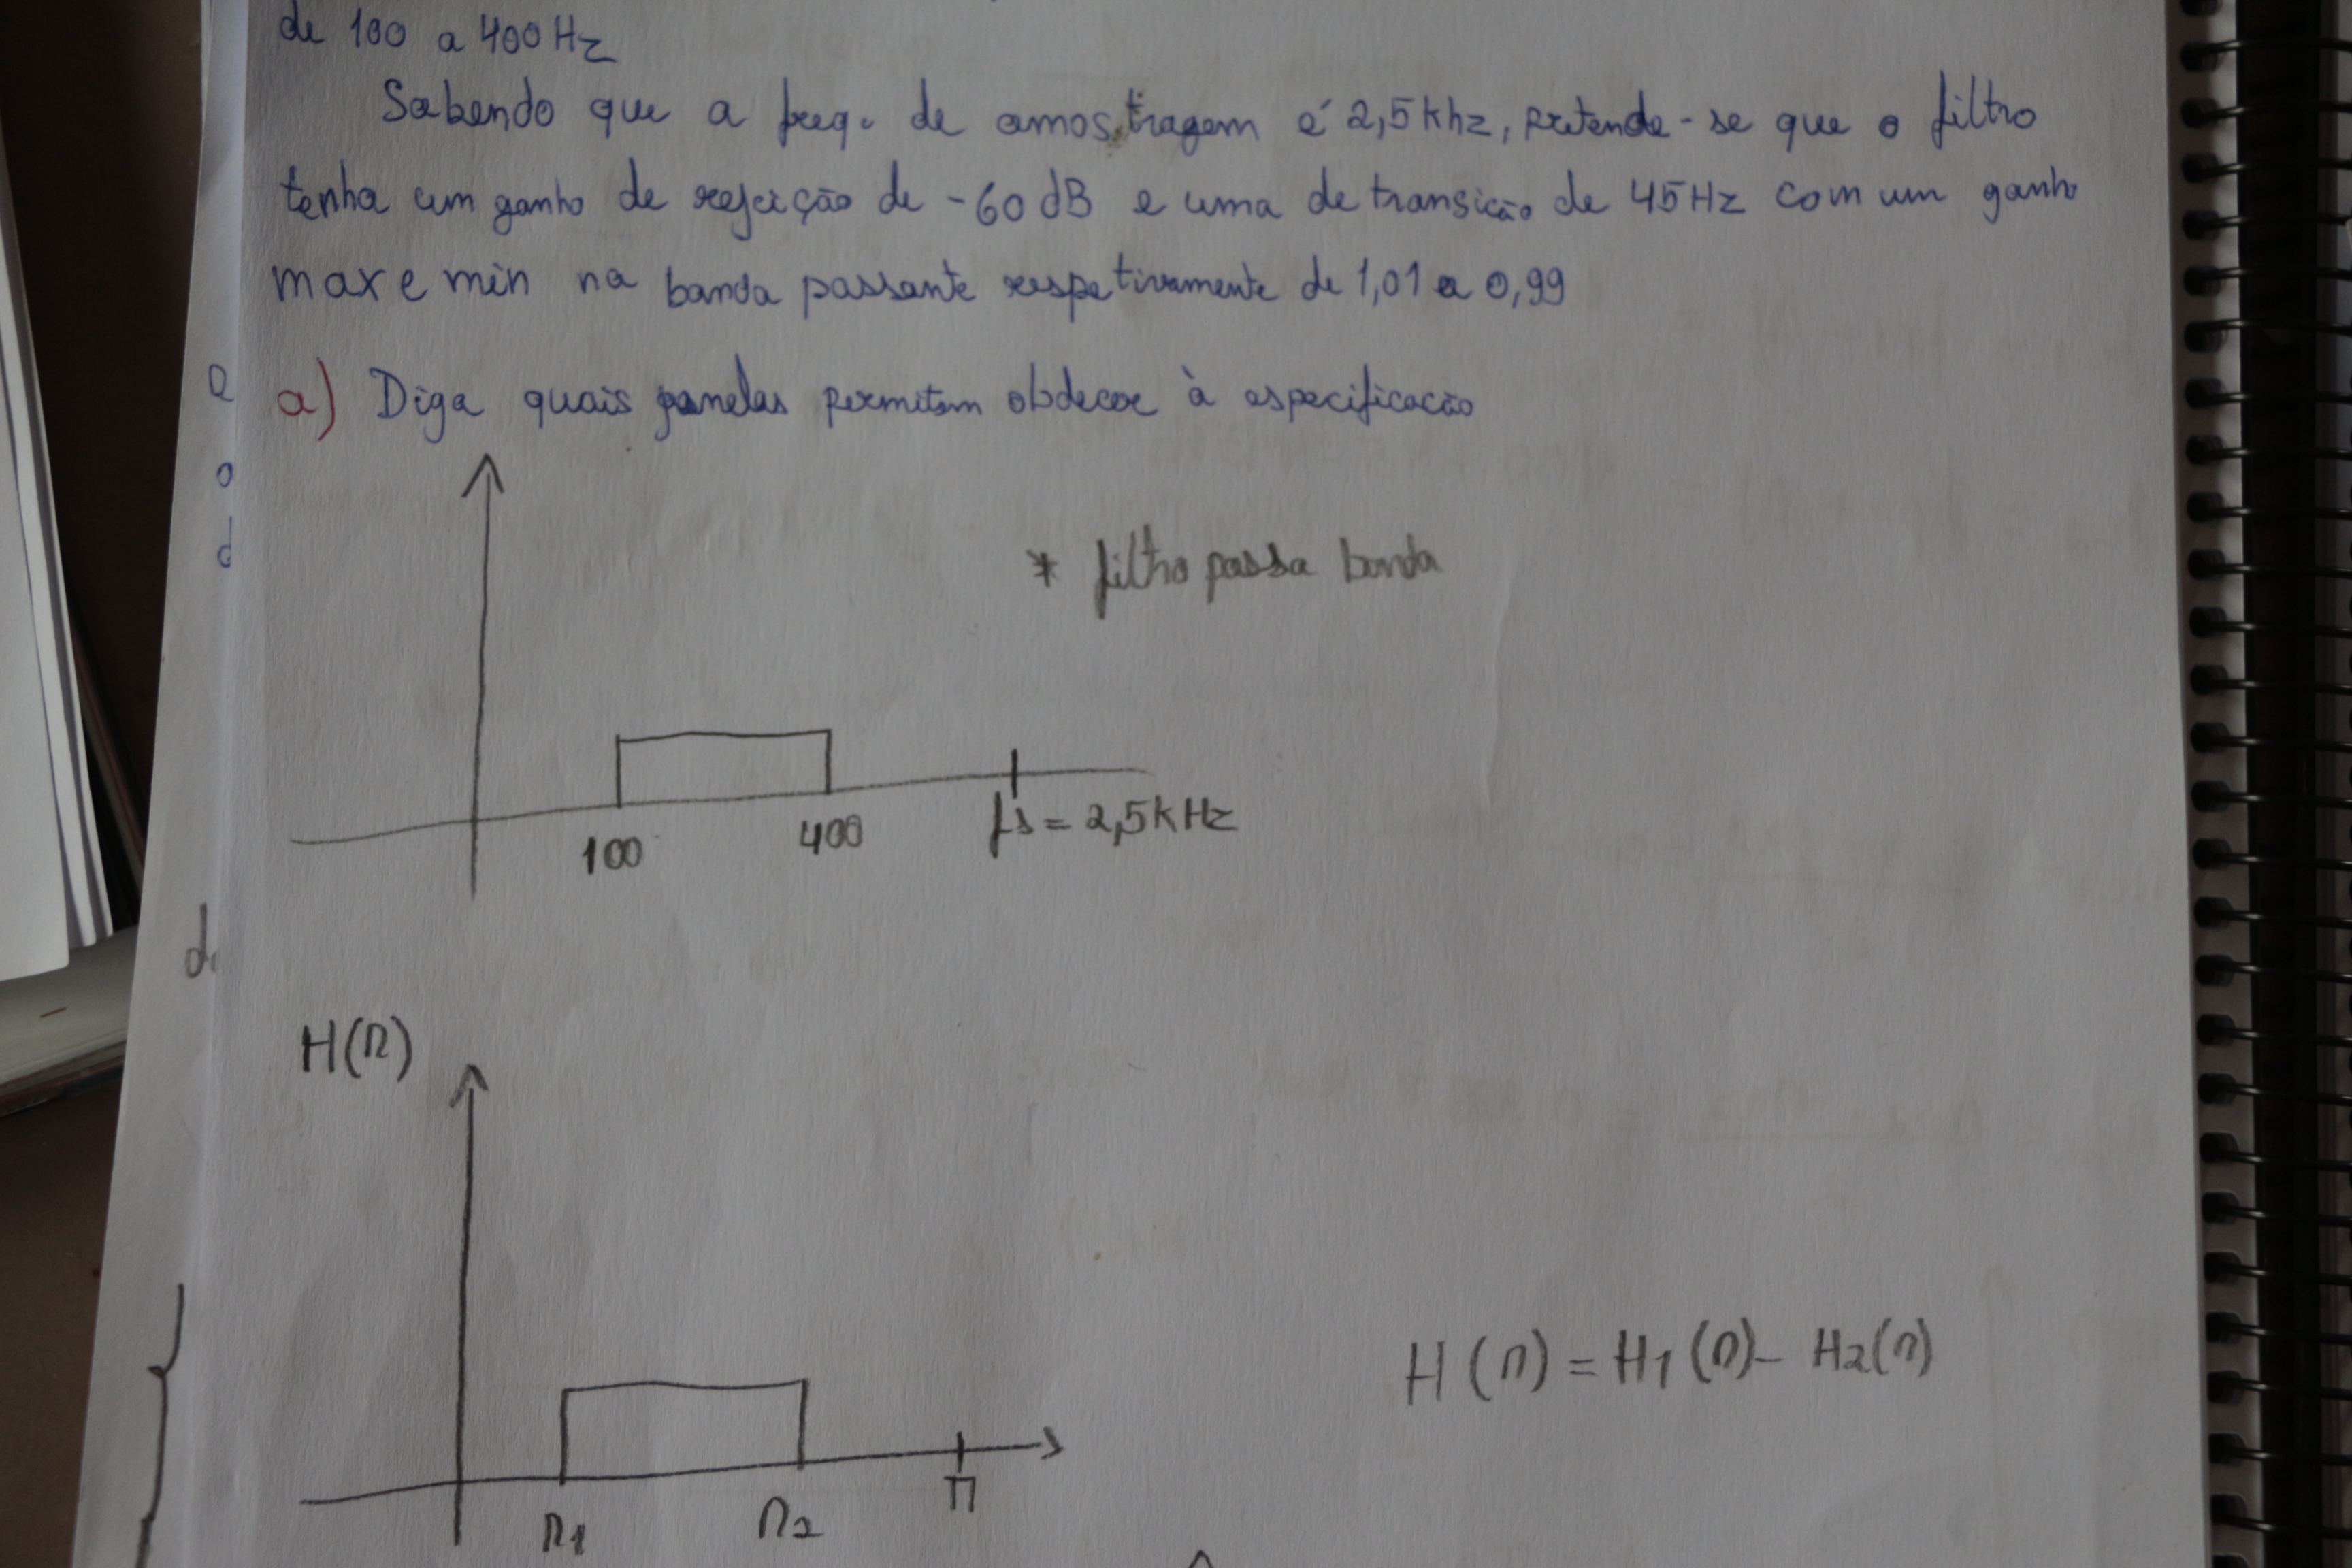 de 100 a 400 Hz
Sabendo que a freq. de amostragem é 2,5 khz, pretende-se que o filtro
tenha um ganho de rejeição de -60 dB e uma de transição de 45 Hz com um ganho
max e min na banda passante respetivamente de 1,01 e 0,99
a) Diga quais janelas permitem obdecer à especificação
* filtro passa banda
100 400 fs = 2,5 kHz
H(Ω)
H(Ω) = H1(Ω) - H2(Ω)
Ω1 Ω2 π